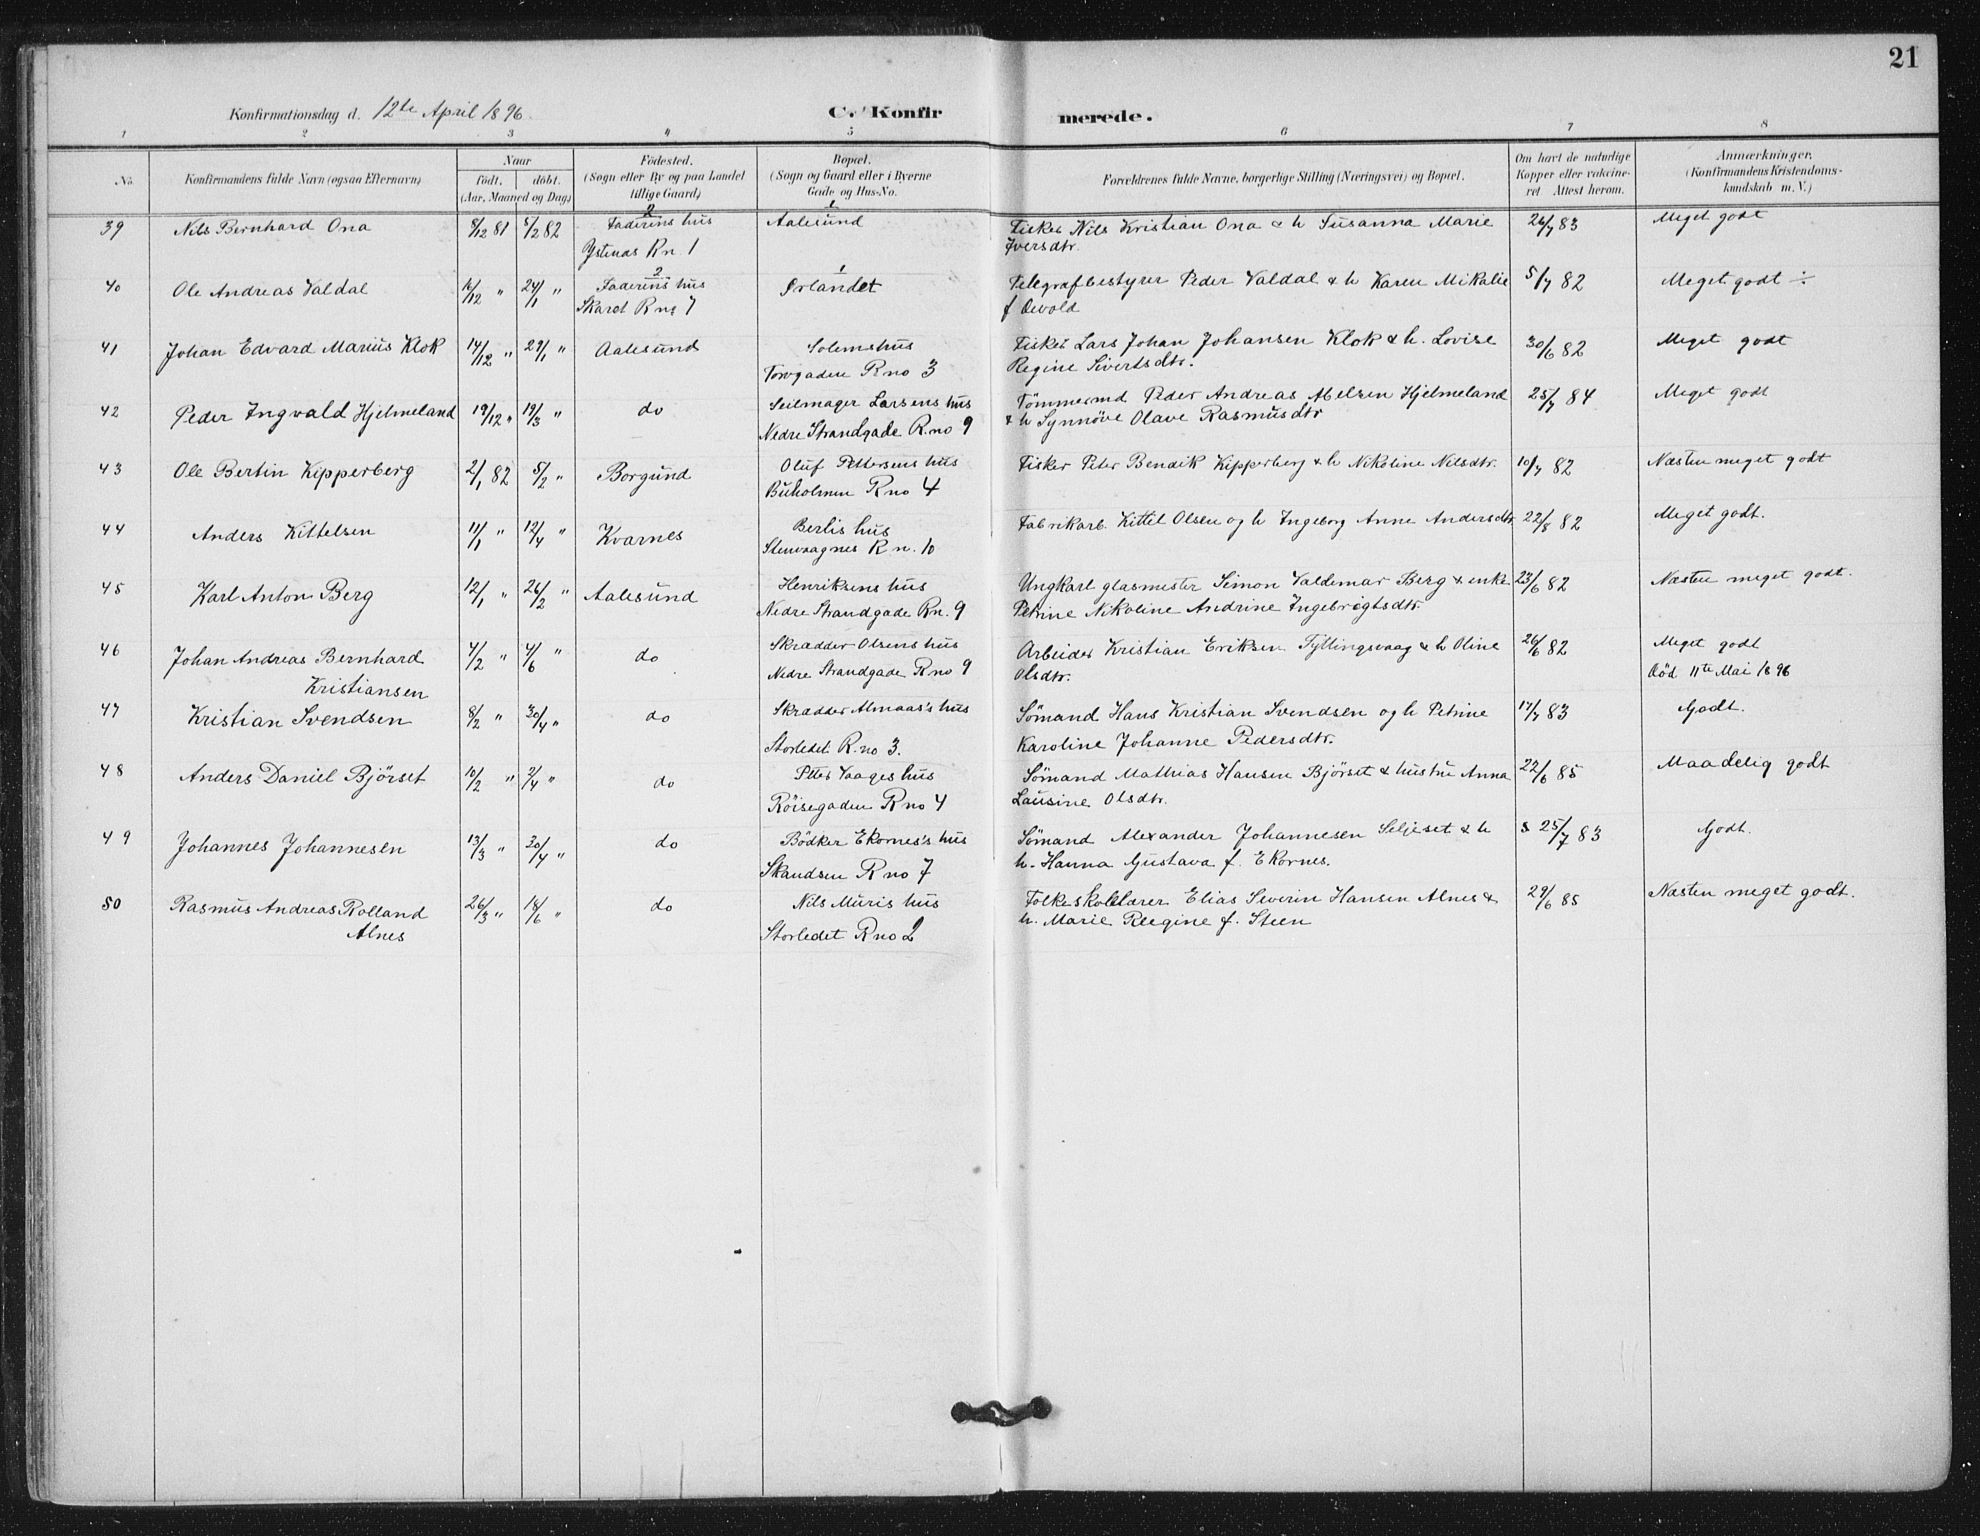 21
Konfirmationsdag d. 12te April 1896.
C. Konfir merede.
1 2 3 4 5 6 7 8
No. Konfirmandens fulde Navn (ogsaa Efternavn) Naar födt. döbt. (Aar, Maaned og Dag) Födested. (Sogn eller By og paa Landet tillige Gaard) Bopæl. (Sogn og Gaard eller i Byerne Gade og Hus-No. Forældrenes fulde Navne, borgerlige Stilling (Næringsvei) og Bopæl. Om havt de naturlige Kopper eller vakcineret Attest herom. Anmærkninger. (Konfirmandens Kristendomskundskab m. V.)
39 Nils Bernhard Ona 8/12 81 5/2 82 2 Faderens hus 1 Aalesund Fisker Nils Kristian Ona & h Susanna Marie 26/7 83 Meget godt
Ystenæs R n. 1 Iversdtr.
40 Ole Andreas Valdal 16/12 " 24/1 " 2 Faderens hus 1 Ørlandet Telegrafbestyrer Peder Valdal & h Karen Mikalie 5/7 82 Meget godt ÷
Skaret R no 7 f Devold
41 Johan Edvard Marius Klok 14/12 " 29/1 " Aalesund Solemshus Fisker Lars Johan Johansen Klok & h. Lovise 30/6 82 Meget godt
Torvgaden R no 3 Regine Sivertsdtr.
42 Peder Ingvald Hjelmeland 19/12 " 19/3 " do Seilmager Larsens hus Tömmermd Peder Andreas Abelsen Hjelmeland 25/7 84 Meget godt
Nedre Strandgade R.no 9 & h Synnöve Olave Rasmusdtr
43 Ole Bertin Kipperberg 2/1 82 5/2 " Borgund Oluf Pettersens hus Fisker Peter Bendik Kipperberg & h Nikoline Nilsdtr. 10/7 82 Næsten meget godt
Buholmen R no 4
44 Anders Kittelsen 11/1 " 12/4 " Kvarnes Berlis hus Fabrikarb. Kittil Olsen og h Ingeborg Anne Andersdtr 22/8 82 Meget godt.
Stenvaagnes R n. 10
45 Karl Anton Berg 12/1 " 26/2 " Aalesund Henriksens hus Ungkarl glasmester Simon Valdemar Berg & enke 23/6 82 Næsten meget godt.
Nedre Strandgade R n. 9 Petrine Nikoline Andrine Ingebrigtsdtr.
46 Johan Andreas Bernhard 4/2 " 4/6 " do Skrædder Olsens hus Arbeider Kristian Eriksen Tyllingsvaag & h Oline 26/6 82 Meget godt
Kristiansen Nedre Strandgade R no 9 Olsdtr. Död 11te Mai 1896
47 Kristian Svendsen 8/2 " 30/4 " do Skrædder Almaas's hus Sömand Hans Kristian Svendsen og h Petrine 17/7 83 Godt.
Storledet R.no 3. Karoline Johanne Pedersdtr.
48 Anders Daniel Björset 10/2 " 2/4 " do Peter Vaages hus Sömand Mathias Hansen Björset & hustru Anna 22/6 85 Maadelig godt
Röisegaden R no 4 Lausine Olsdtr.
49 Johannes Johannesen 13/3 " 30/4 " do Bödker Ekornes's hus Sömand Alexander Johannesen Seljeset & h s 25/7 83 Godt.
Skandsen R no 7 h. Hanna Gustava f. Ekornes.
50 Rasmus Andreas Rolland 26/3 " 18/6 " do Nils Muris hus Folkeskolelærer Elias Severin Hansen Alnes & 29/6 85 Næsten meget godt.
Alnes Storledet R no 2 h. Marie Regine f. Steen